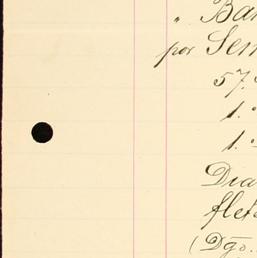 " Ban
por Sem
57.
1.
1.
Dia
flet
(Dgo.